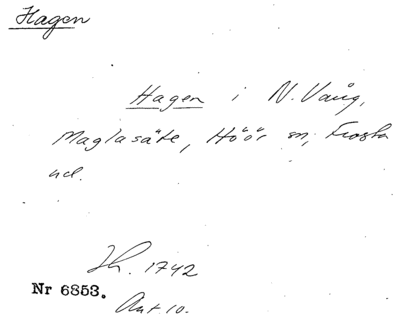 Hagen
Hagen i N. Vång,
Maglasäte, Höör sn, Frosta
hd.
Jh. 1742
Nr 6853.
Ant. 10.